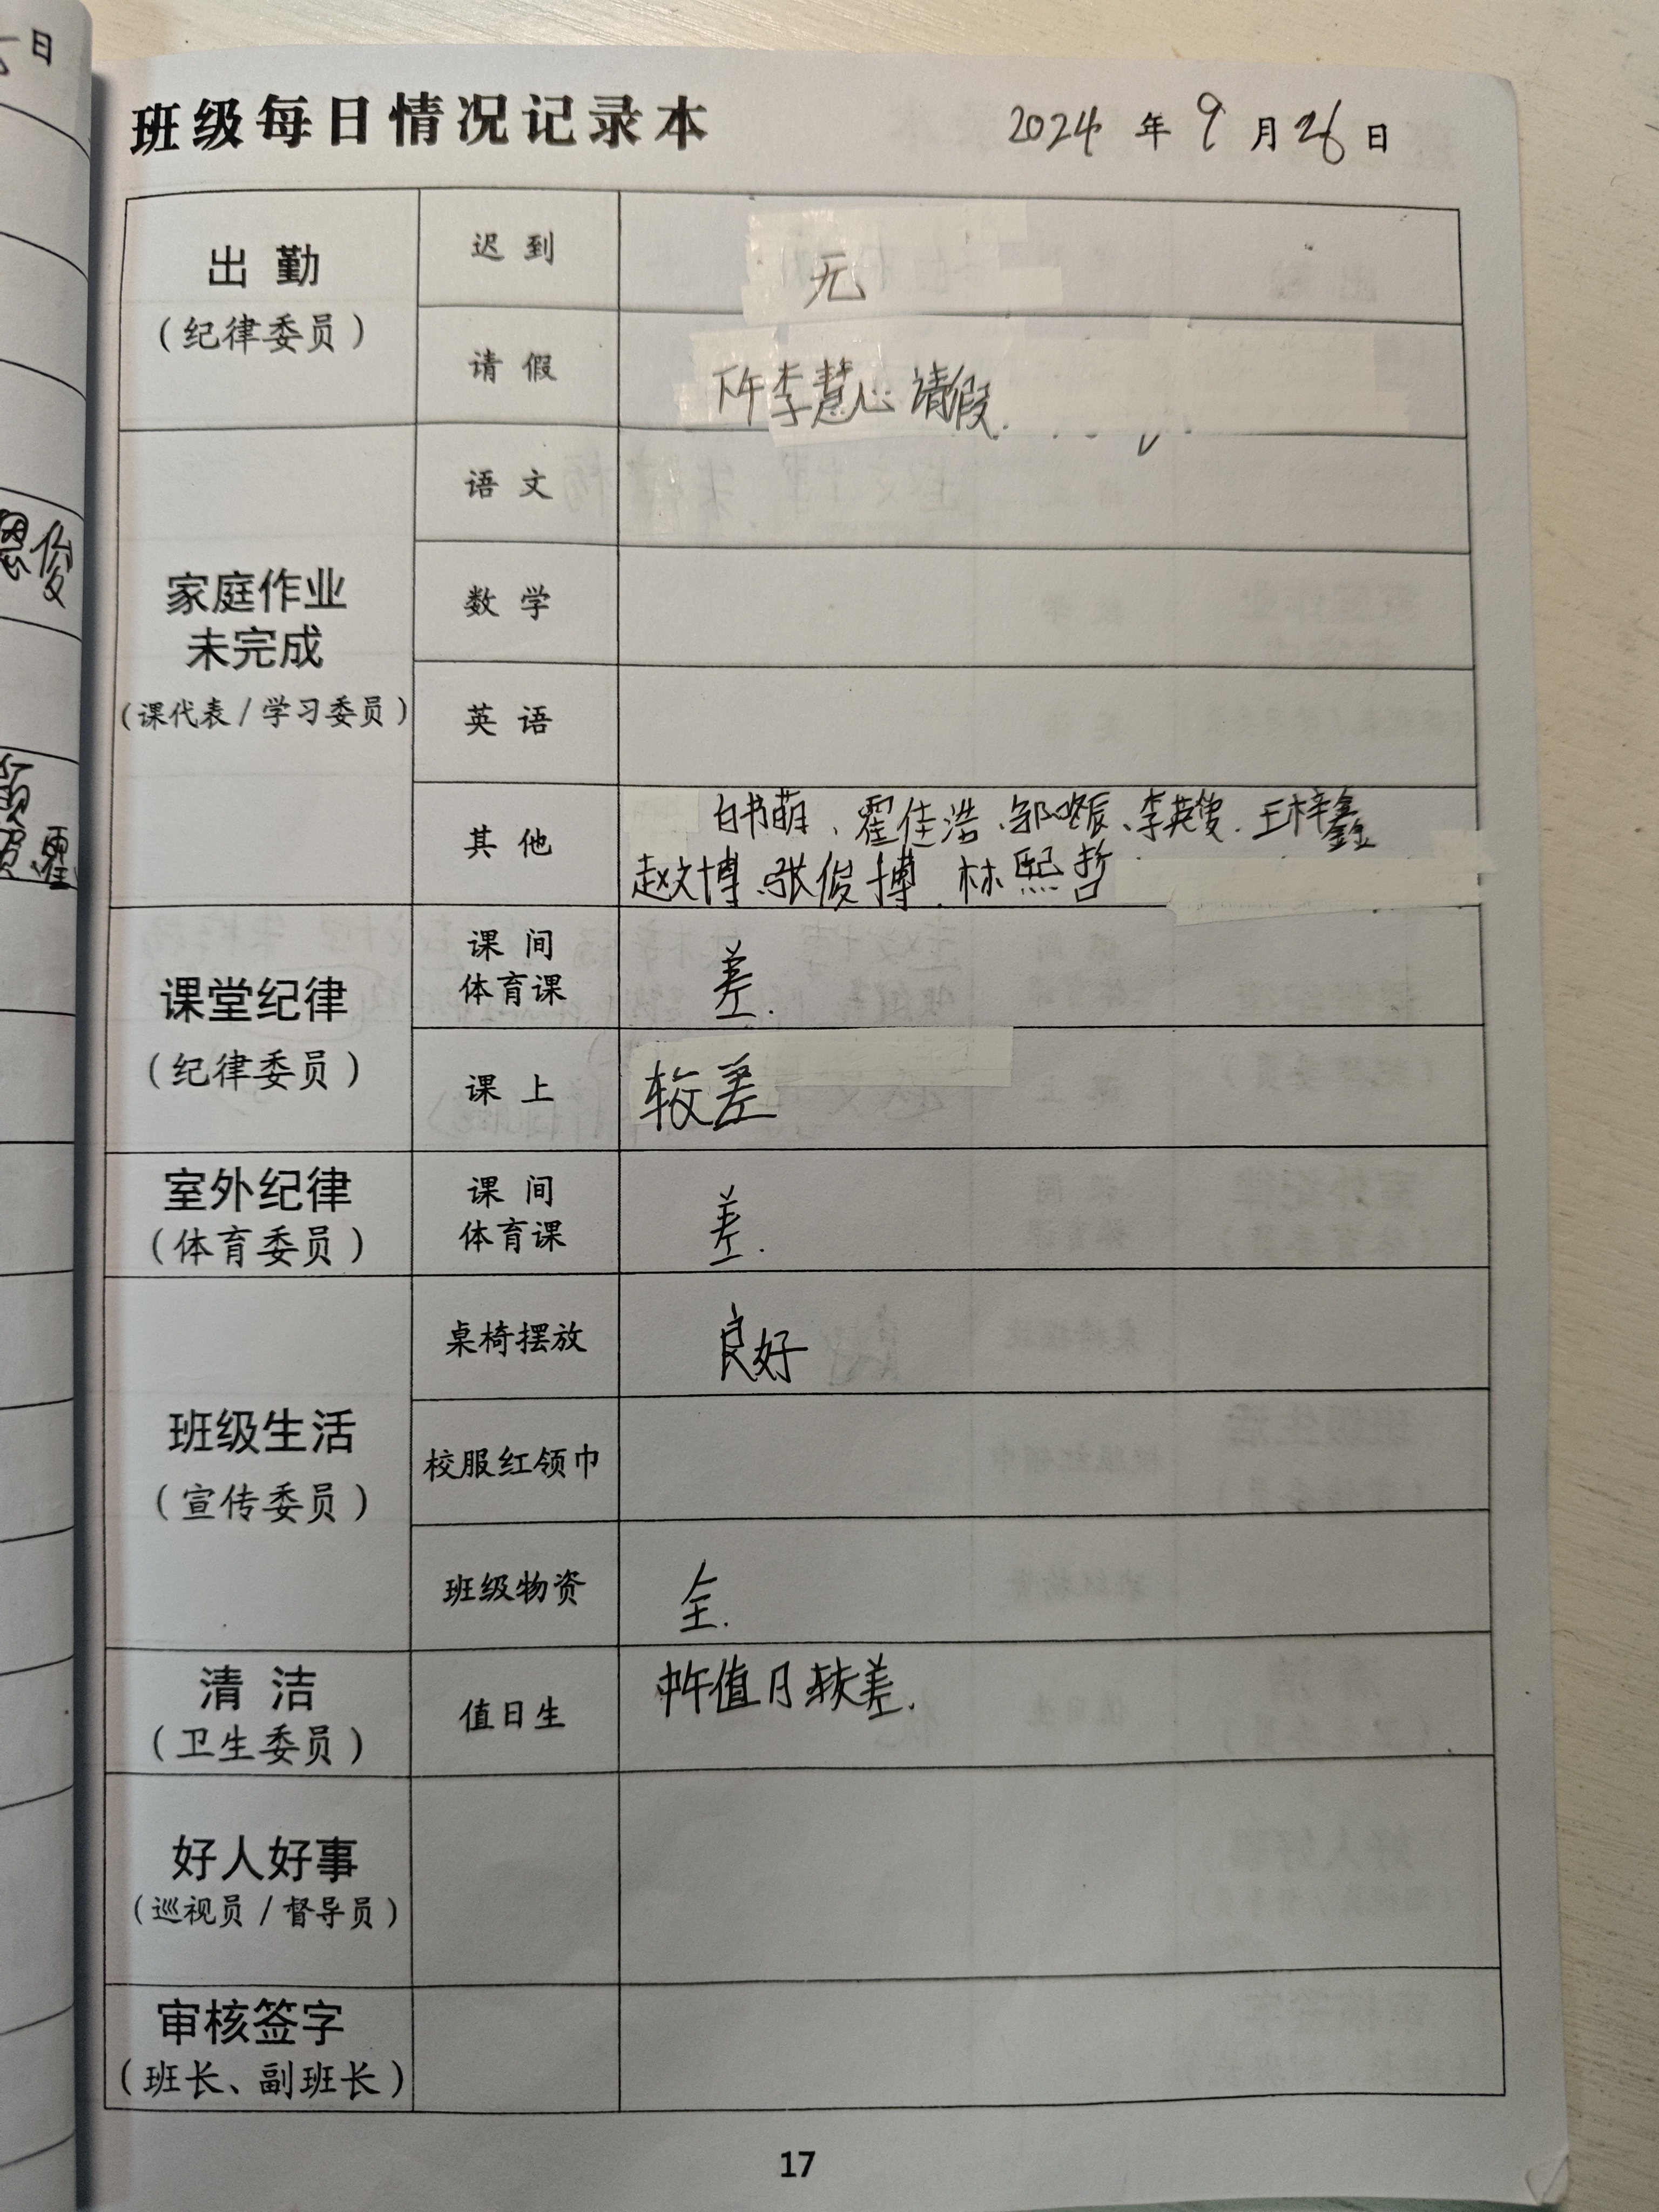 班级每日情况记录本 2024年9月26日
出勤
(纪律委员)
迟到
无
请假
下午李慧心请假.
家庭作业
未完成
(课代表/学习委员)
语文
数学
英语
其他
白书萌、霍佳浩、邹晙辰、李英夋.王梓鑫
赵文博、张俊博.林熙哲
课堂纪律
(纪律委员)
课间
体育课
差.
课上
较差
室外纪律
(体育委员)
课间
体育课
差.
班级生活
(宣传委员)
桌椅摆放
良好
校服红领巾
班级物资
全.
清洁
(卫生委员)
值日生
中午值日较差.
好人好事
(巡视员/督导员)
审核签字
(班长、副班长)
17